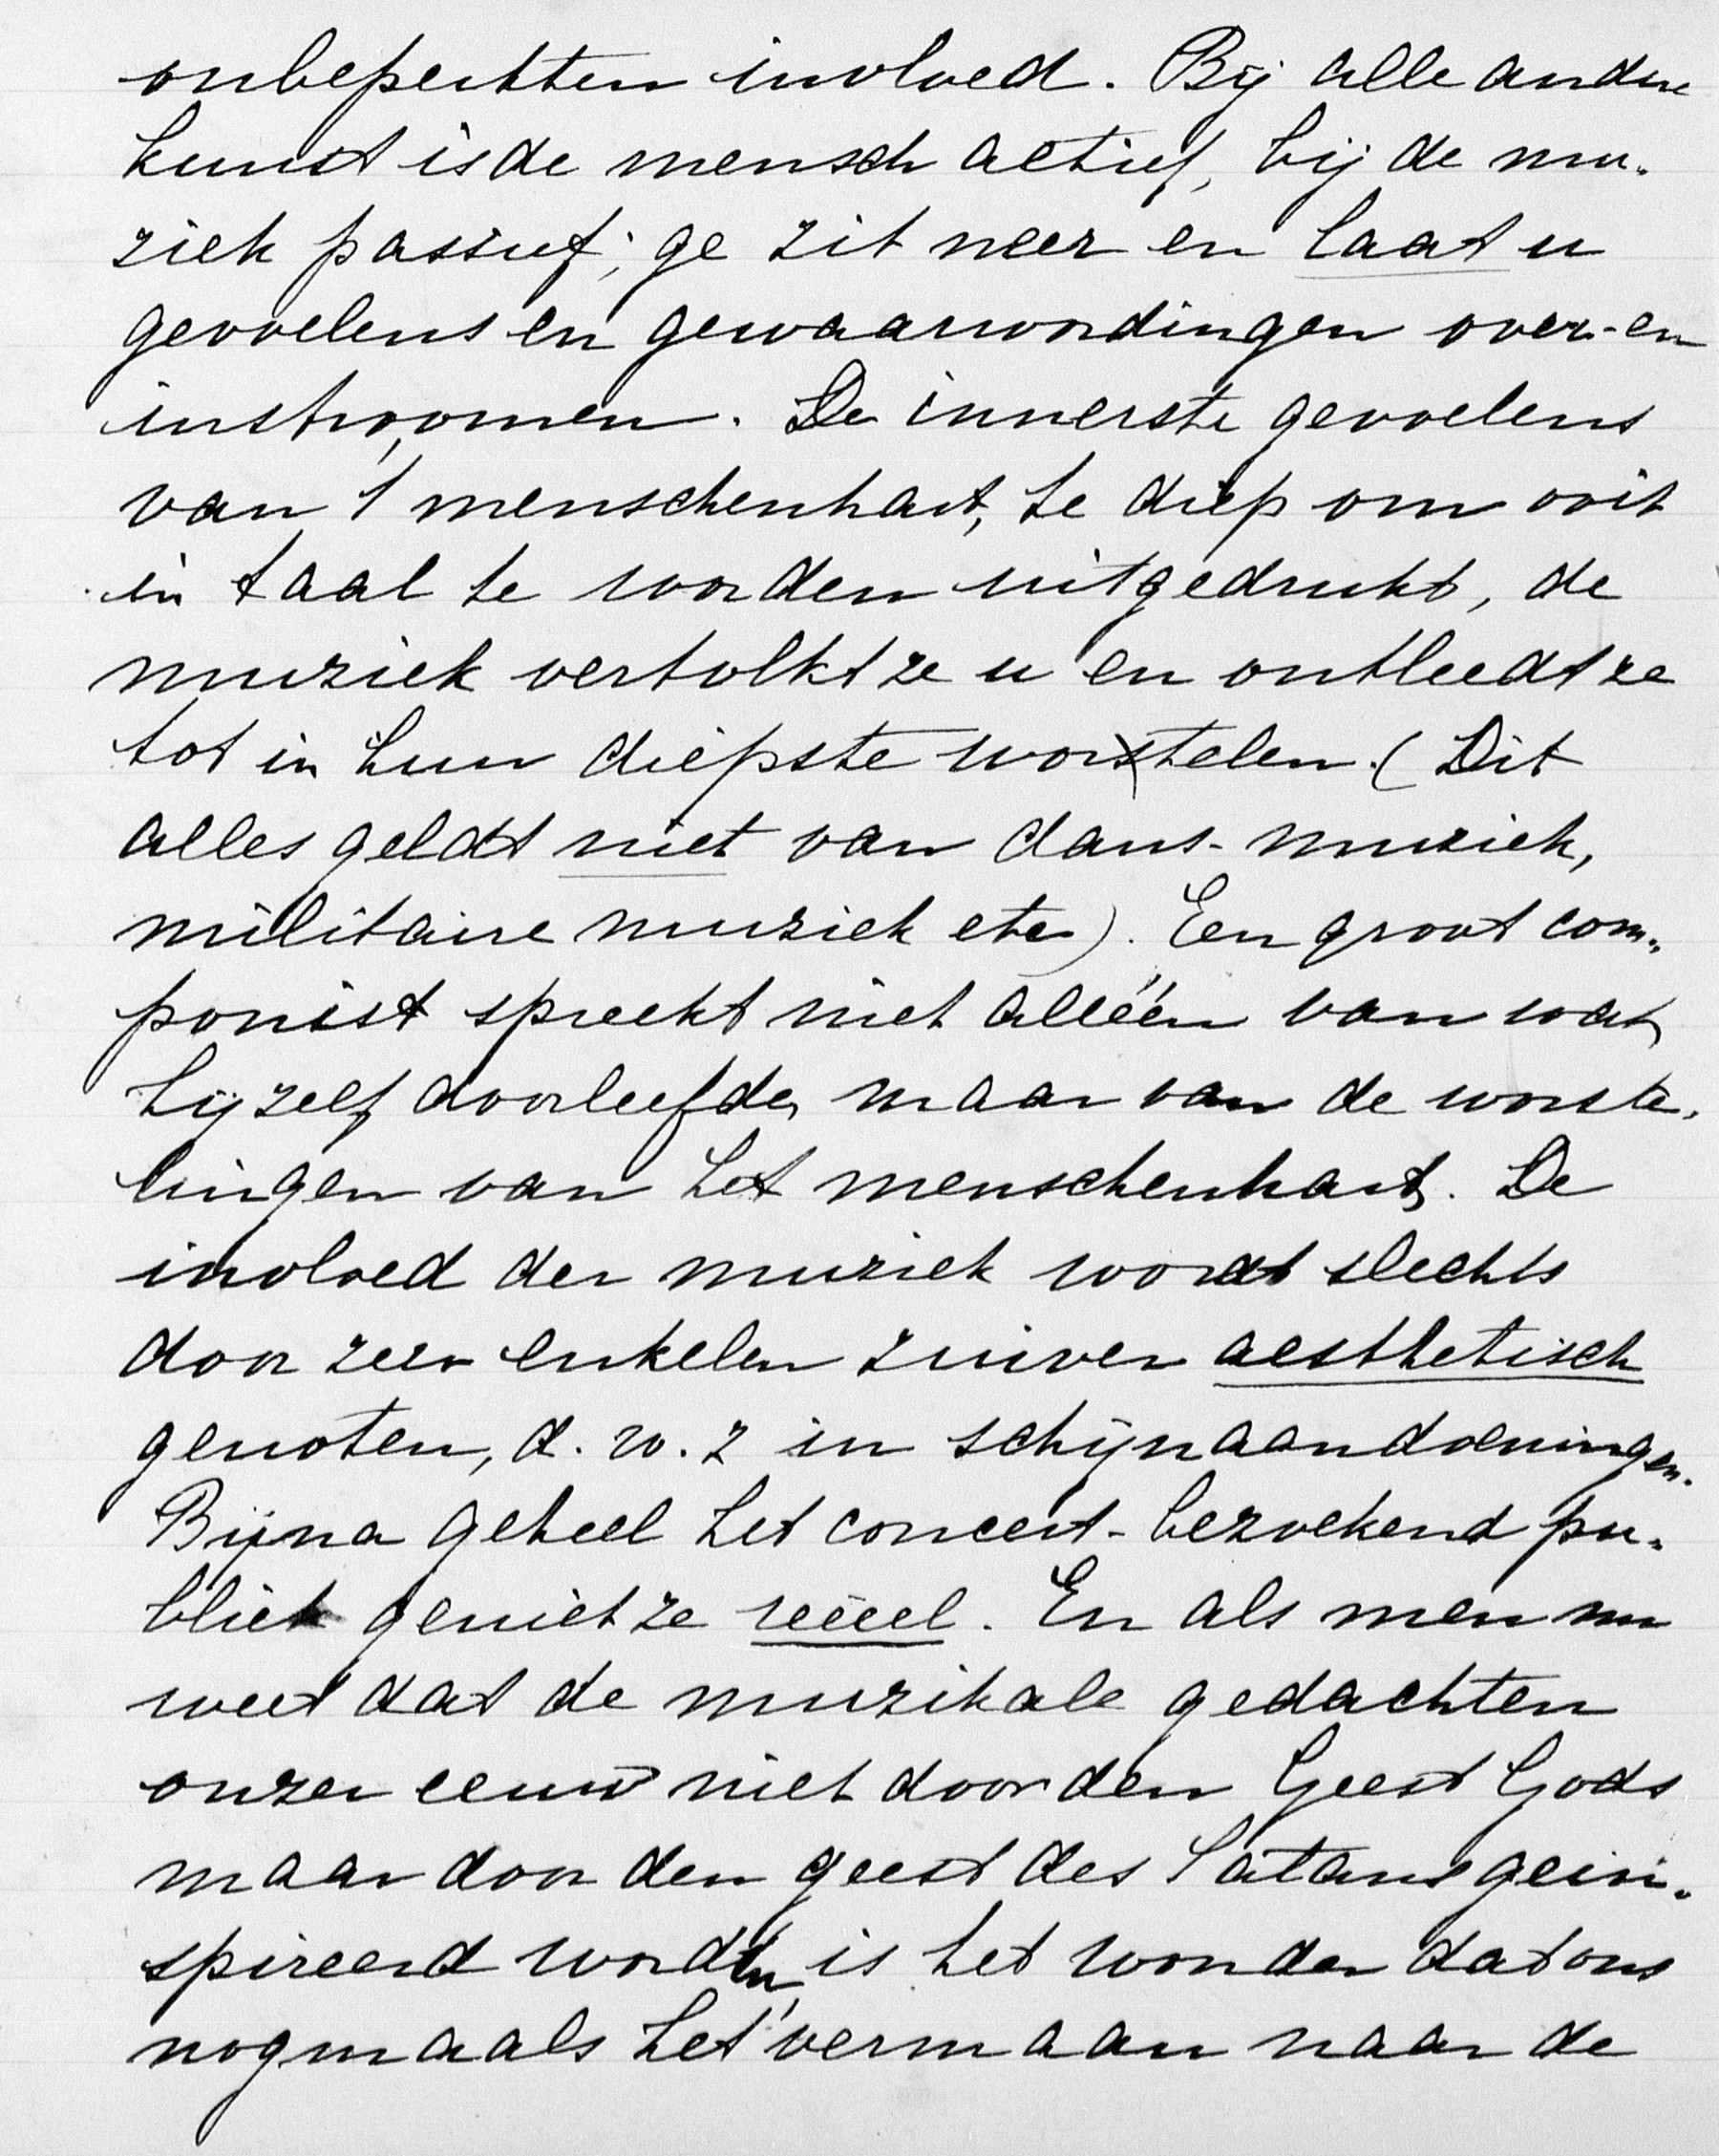 onbeperkten invloed. Bij alle andere
kunst is de mensch actief, bij de mu-
ziek passief; ge zit neer en laat u
gevoelens en gewaarwordingen over- en
instroomen. De innerste gevoelens
van 't menschenhart, te diep om ooit
in taal te worden uitgedrukt, de
muziek vertolkt ze u en ontleedt ze
tot in hun diepste wortelen. (Dit
alles geldt niet van dans-muziek,
militaire muziek etc). Een groot com-
ponist spreekt niet alléén van wat
hij zelf doorleefde, maar van de worste-
lingen van het menschenhart. De
invloed der muziek wordt slechts
door zeer enkelen zuiver aesthetisch
genoten, d.w.z in schijnaandoeningen.
Bijna geheel het concert-bezoekend pu-
bliek geniet ze reëeel. En als men nu
weet dat de muzikale gedachten
onzer eeuw niet door den Geest Gods
maar door den geest des Satans gein-
spireerd worden, is het wonder dat ons
nogmaals het vermaan naar de